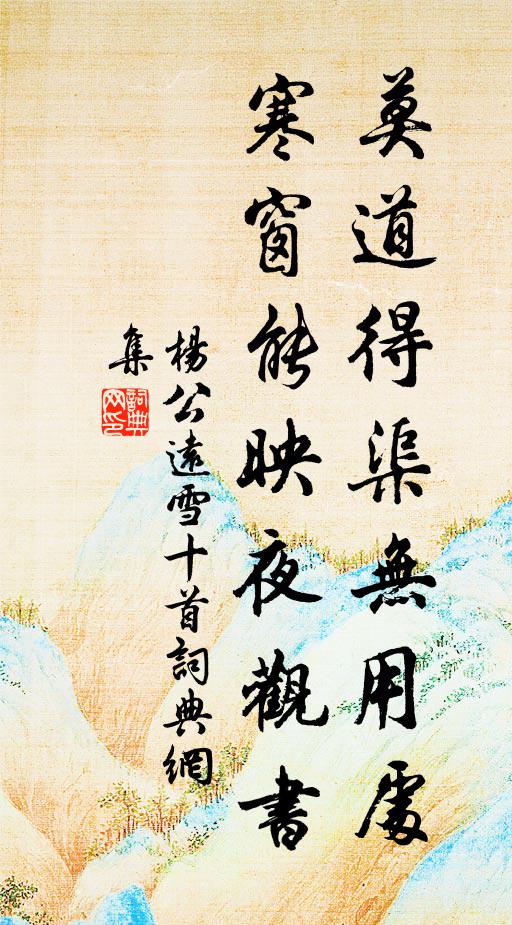 莫道得渠無用處
寒窗能映夜觀書
楊公遠雪十首詞典網
集
詞典網印